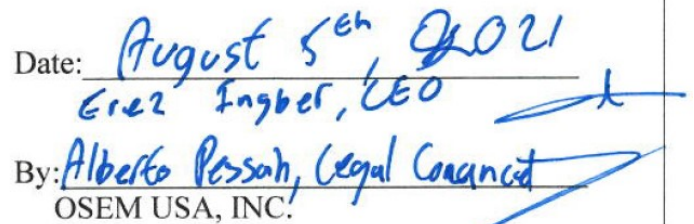 Date: August 5th, 2021
Erez Ingber, CEO
By: Alberto Pessah, Legal
OSEM USA, INC.